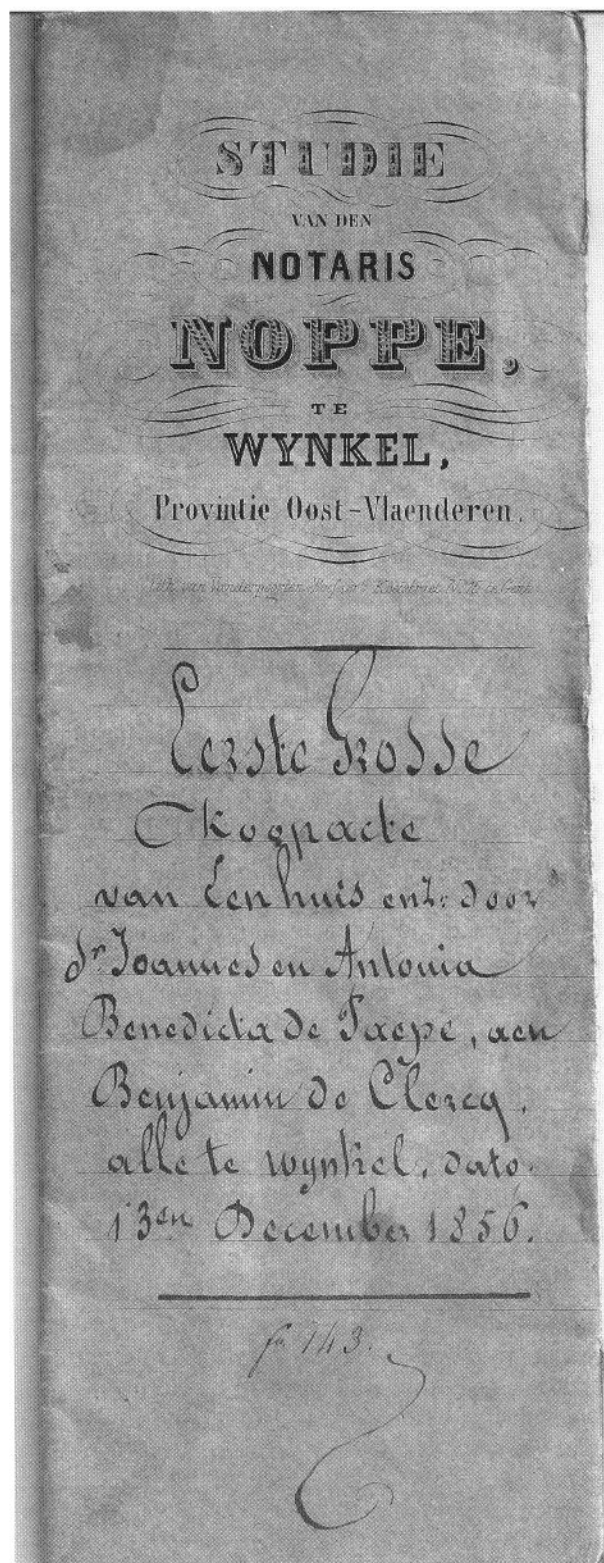 STUDIE
VAN DEN
NOTARIS
NOPPE,
TE
WYNKEL,
Provintie Oost-Vlaenderen.
Lith. van Vanderpoorten in Gent
Eerste Grosse
Koopacte
van Een huis enz: door
Sr. Joannes en Antonia
Benedicta de Paepe, aen
Benjamin de Clercq,
alle te wynkel, dato
13en December 1856.
fr 143.